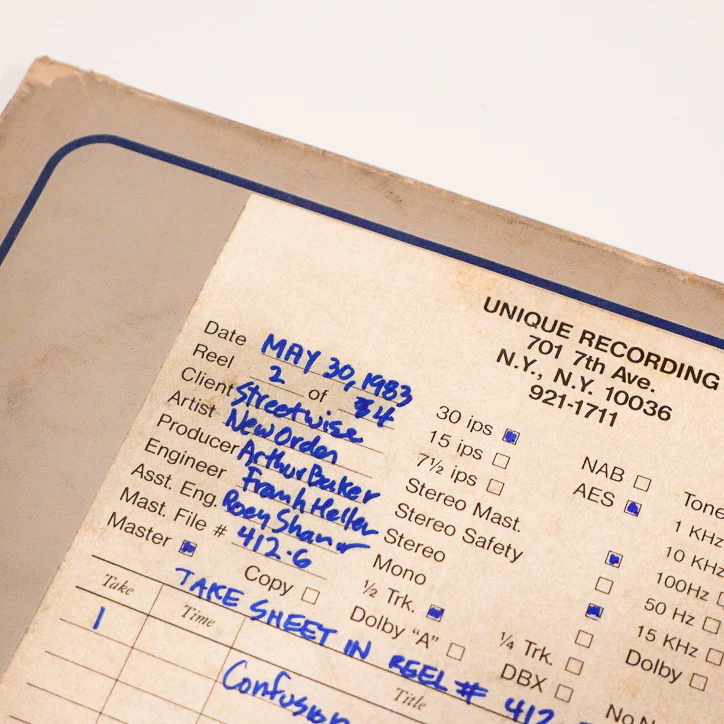 UNIQUE RECORDING
701 7th Ave.
N.Y., N.Y. 10036
921-1711
Date MAY 30, 1983
Reel 2 of 4
Client Streetwise
Artist New Order
Producer Arthur Baker
Engineer Frank Heller
Asst. Eng. Roey Shamir
Mast. File # 412-6
Master
Copy
30 ips
15 ips
7½ ips
Stereo Mast.
Stereo Safety
Stereo
Mono
½ Trk.
¼ Trk.
Dolby "A"
DBX
NAB
AES
Tone
1 KHz
10 KHz
100Hz
50 Hz
15 KHz
Dolby
No N
TAKE SHEET IN REEL # 412
Take Time Title
1 Confusion